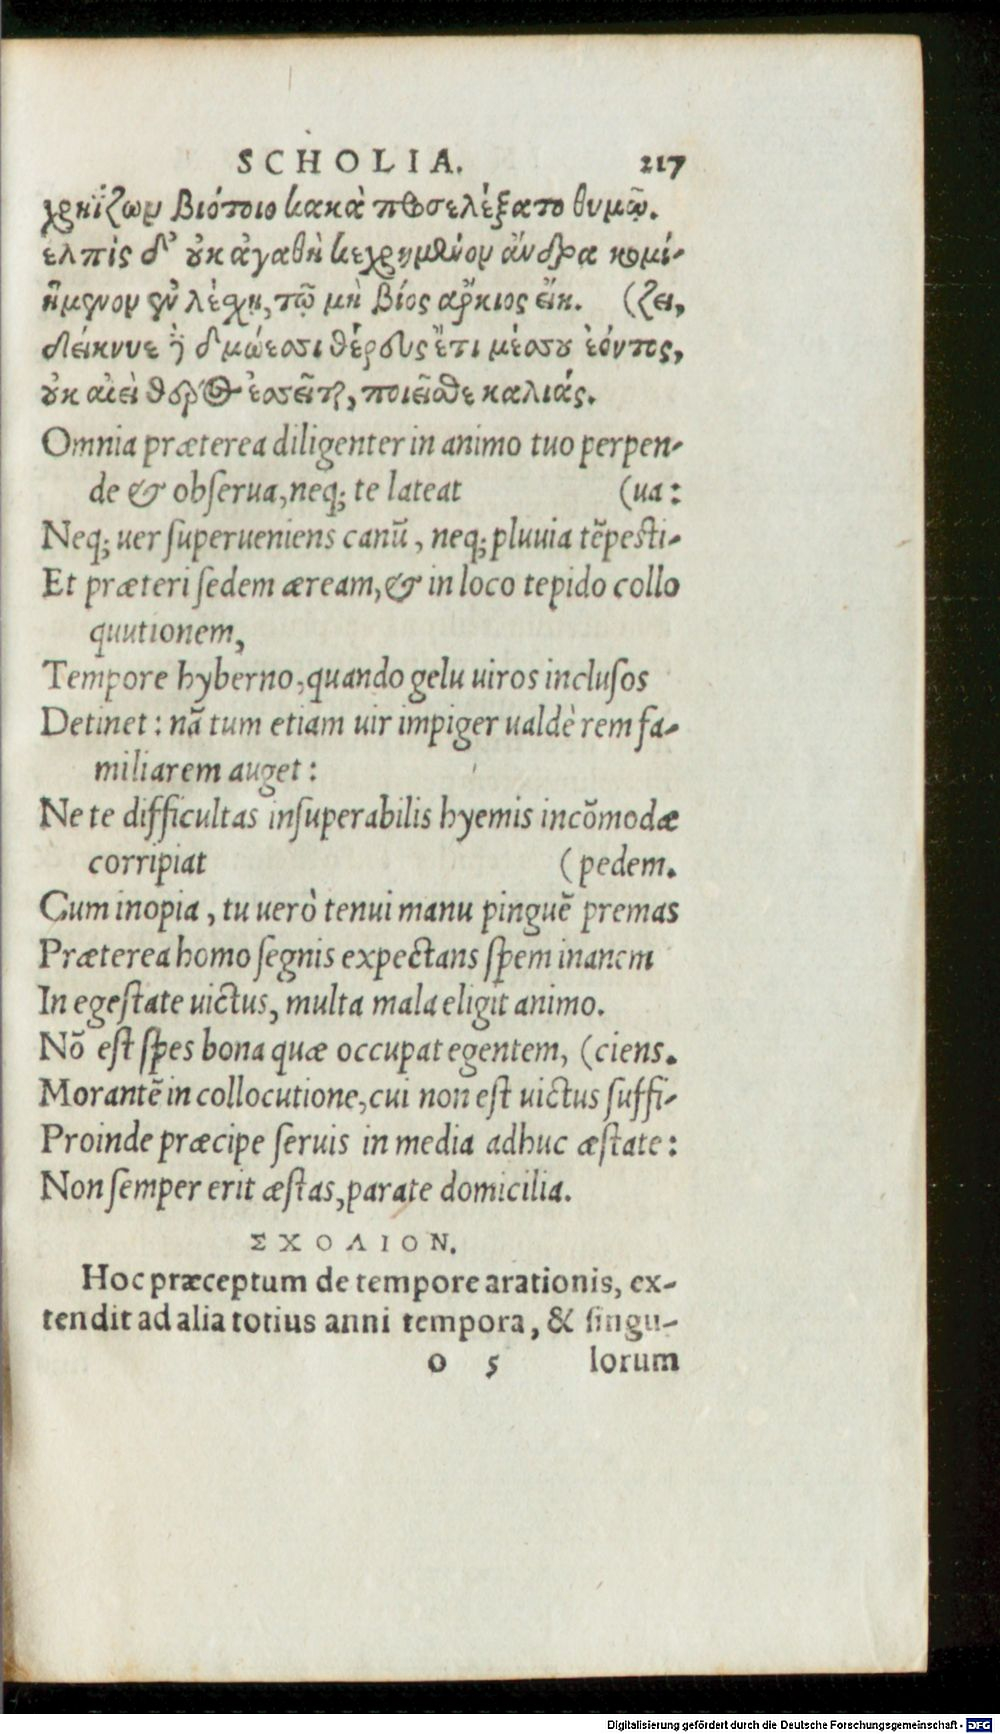 SCHOLIA. 217
χρηΐζων βιότοιο κακὰ προσελέξατο θυμῷ.
ελπὶς δ' οὐκ ἀγαθὴ κεχρημένον ἄνδρα κομί-
ἥμενον ἐν λέσχῃ, τῷ μὴ βίος ἄρκιος εἴη. (ζει,
δείκνυε ἢ δμώεσσι θέρους ἔτι μέσσου ἐόντος,
οὐκ αἰεὶ θέρος ἐσσεῖται, ποιεῖσθε καλιάς.
Omnia præterea diligenter in animo tuo perpen-
de & obſerua, neq; te lateat (ua:
Neq; uer ſuperueniens canũ, neq; pluuia tẽpesti-
Et præteri ſedem æream, & in loco tepido collo
quutionem,
Tempore hyberno, quando gelu uiros incluſos
Detinet: nã tum etiam uir impiger ualdè rem fa-
miliarem auget:
Ne te difficultas inſuperabilis hyemis incõmodæ
corripiat (pedem.
Cum inopia, tu uerò tenui manu pinguẽ premas
Præterea homo ſegnis expectans ſpem inanem
In egeſtate uictus, multa mala eligit animo.
Nõ eſt ſpes bona quæ occupat egentem, (ciens.
Morantẽ in collocutione, cui non eſt uictus ſuffi-
Proinde præcipe ſeruis in media adhuc æſtate:
Non ſemper erit æſtas, parate domicilia.
ΣΧΟΛΙΟΝ.
Hoc præceptum de tempore arationis, ex-
tendit ad alia totius anni tempora, & ſingu-
o 5 lorum
Digitalisierung gefördert durch die Deutsche Forschungsgemeinschaft - DFG